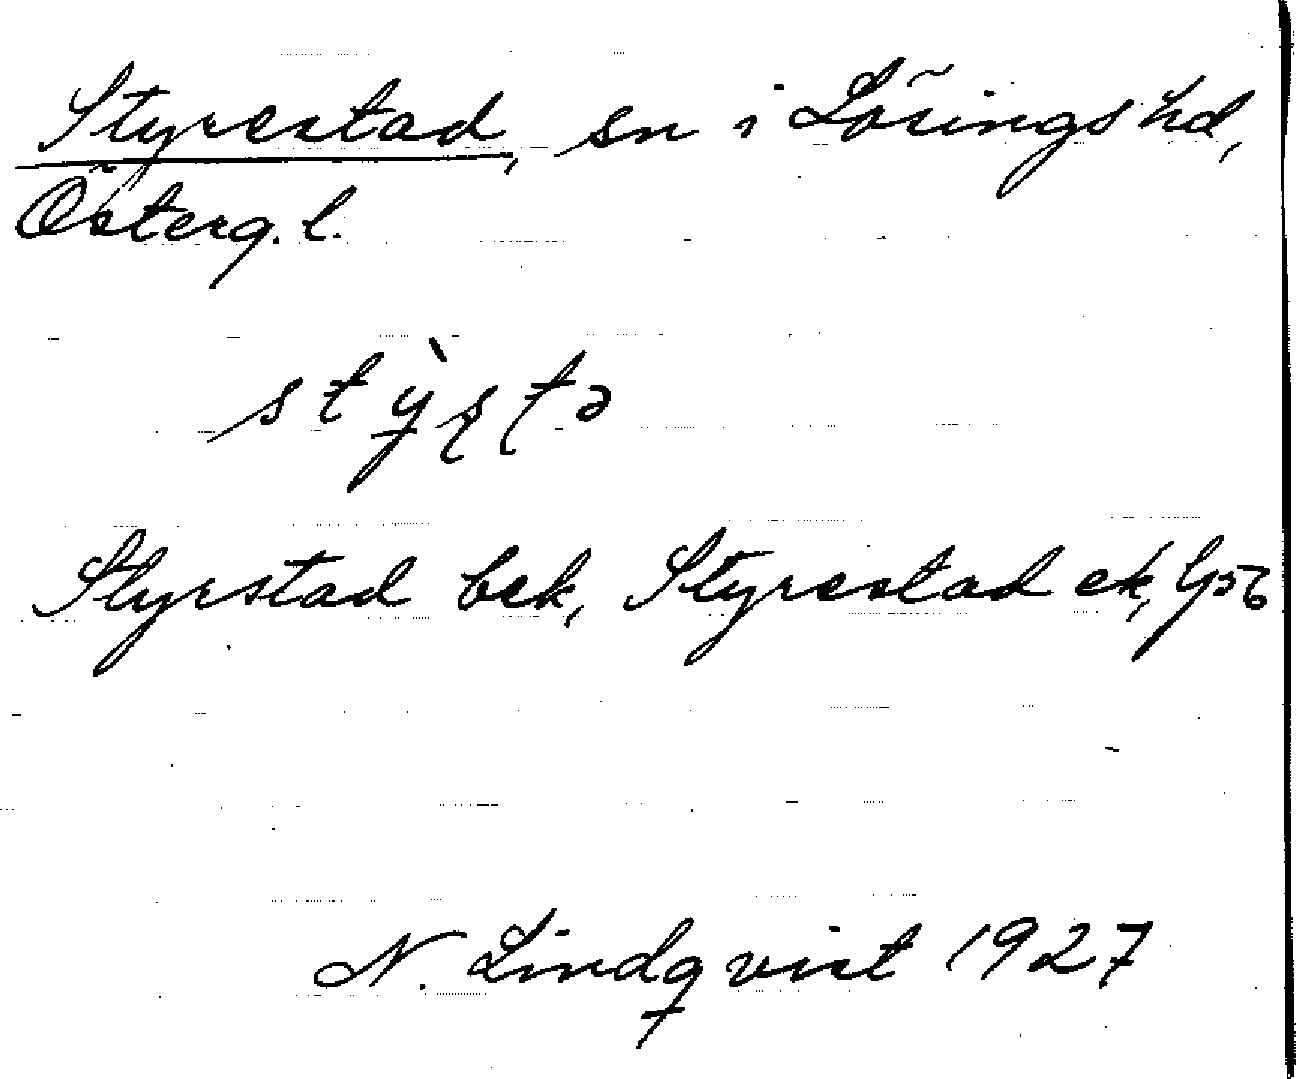 Styrestad, sn i Lösings hd,
Österg. l.
stỳʂʈə
Styrstad bek, Styrestad ek,
N. Lindqvist 1927